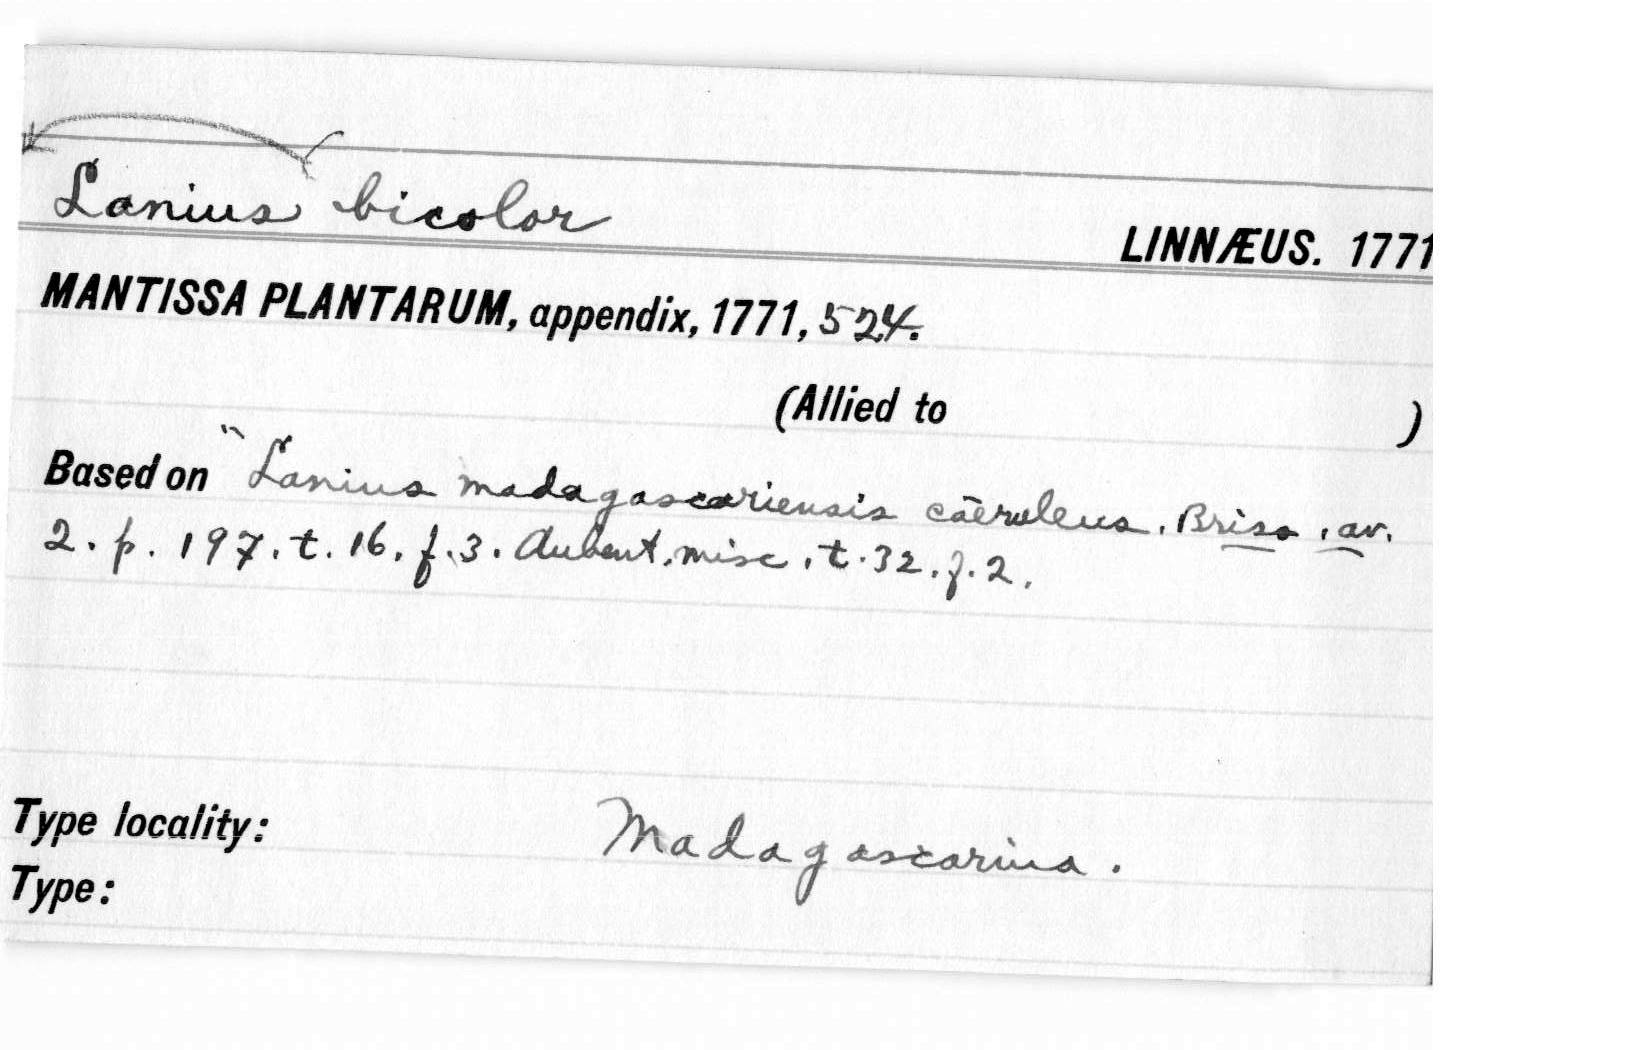 Lanius bicolor
LINNÆUS. 1771
MANTISSA PLANTARUM, appendix, 1771, 524.
(Allied to )
Based on "Lanius madagascariensis cāeruleus. Briss. av.
2. p. 197. t. 16. f. 3. Aubent. misc. t. 32. f. 2.
Type locality: Madagascarina.
Type: